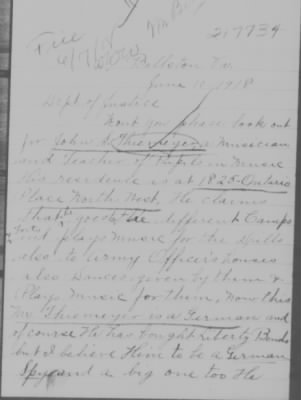 File
217734
Ballston Va.
June 10, 1918
Dept of Justice
Wont you please look out
for John S. Thiemeyer a Musician
and Teacher of Pupils in Music
His residence is at 1825-Ontario
Place North West. He claims
that he goes to the different Camps
and plays music for the Drills
also to Army Officers houses
also Dances given by them &
Plays Music for them, Now this
Mr. Thiemeyer is a German and
of course He has bought liberty Bonds
but I believe Him to be a German
Spy and a big one too He